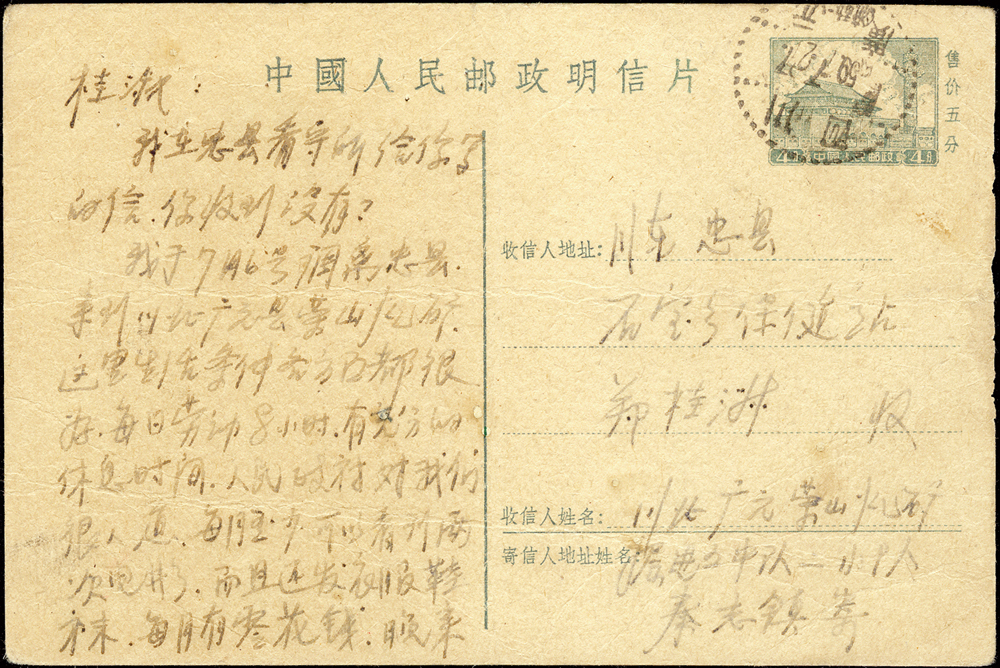 中國人民邮政明信片
售价五分
桂淑：
我在忠县看守所给你
的信.你收到没有？
我于7月6号 离忠县.
来到川北广元县荣山 矿.
这里生活条件各方面都很
好.每日劳动8小时.有充分的
休息时间.人民政府对我们
很人道.每月至少可以看到两
次电影.而且还发衣服鞋
袜.每月有零花钱.
中國人民邮政
收信人地址：川东忠县
石宝 保健站
郑桂淑 收
收信人姓名：
川北广元荣山 矿
寄信人地址姓名：
五中队一小
秦志镇寄